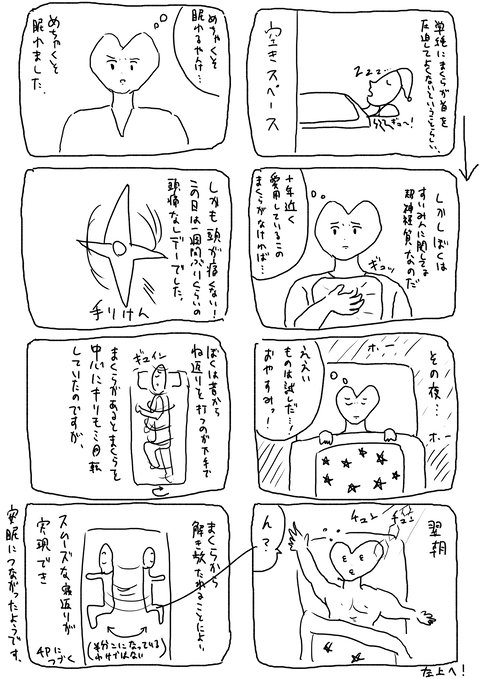 単純にまくらが首を
圧迫してよくないということらしい。
ZZZ…
ギュ〜!
空きスペース
しかしぼくは
すいみんに関しては
超神経質なのだ
ギュッ
十年近く
愛用しているこの
まくらがなければ…
その夜…
ホー
ホー
ええい
ものは試しだ…!
おやすみっ!
翌朝
チュン
チュン
ん?
左上へ!
めちゃくそ
眠れるやんけ…
めちゃくそ
眠れました。
しかも頭が痛くない!
この日は一週間ぶりくらいの
頭痛なしデーでした。
手りけん
ぼくは昔から
ね返りを打つのが下手で
ギュイン
まくらがあるとまくらを
中心にキリモミ回転
していたのですが、
まくらから
解き放たれることにより
スムーズな寝返りが
実現でき
(半分こになっている
わけではない)
安眠につながったようです。
4Pに
つづく